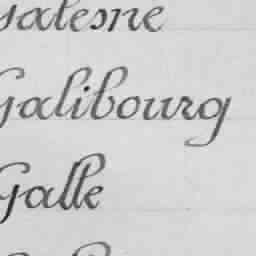 Galesne
Galibourg
Galle